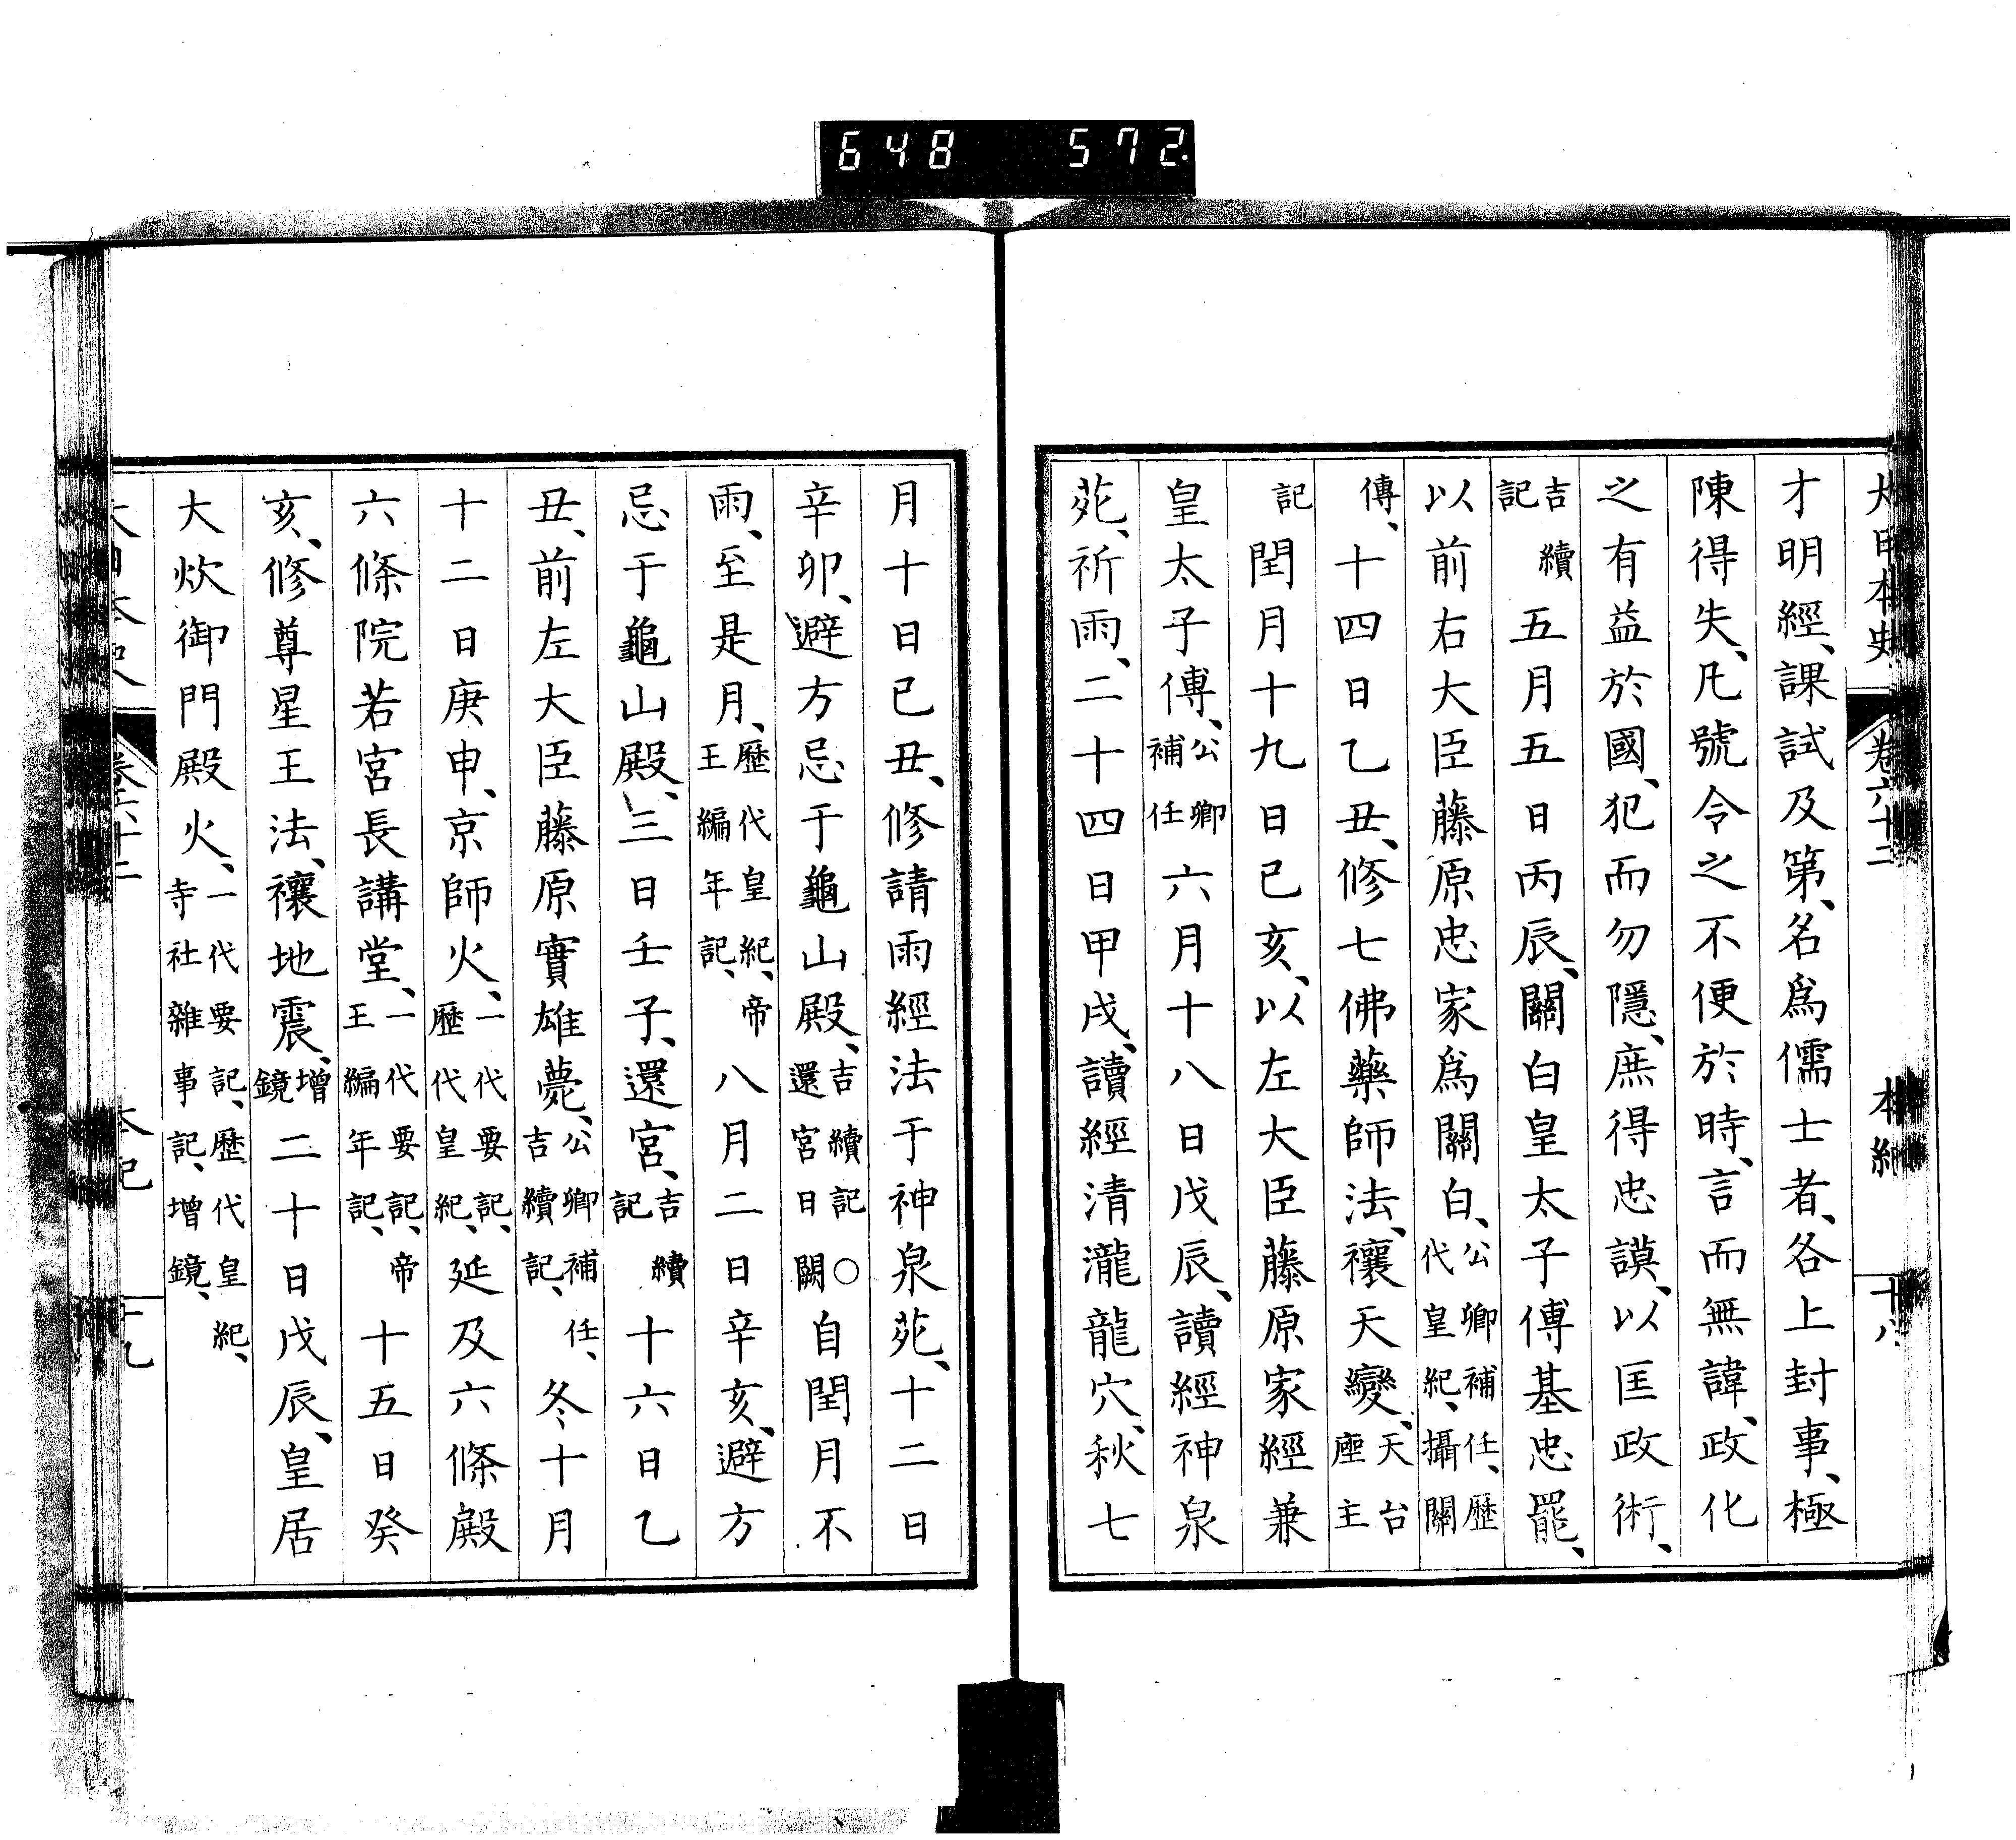 648 572.
大日本史 卷六十三 本紀 十八
才明經、課試及第、名爲儒士者、各上封事、極
陳得失、凡號令之不便於時、言而無諱、政化
之有益於國、犯而勿隱、庶得忠謨、以匡政術、
吉續記五月五日丙辰、關白皇太子傅基忠罷、
以前右大臣藤原忠家爲關白、公卿補任、歷代皇紀、攝關
傳、十四日乙丑、修七佛藥師法、禳天變、天台座主
記閏月十九日己亥、以左大臣藤原家經兼
皇太子傅、公卿補任六月十八日戊辰、讀經神泉
苑、祈雨、二十四日甲戌、讀經清瀧龍穴、秋七
月十日己丑、修請雨經法于神泉苑、十二日
辛卯、避方忌于龜山殿、吉續記○還宮日闕自閏月不
雨、至是月、歷代皇紀、帝王編年記、八月二日辛亥、避方
忌于龜山殿、三日壬子、還宮、吉續記十六日乙
丑、前左大臣藤原實雄薨、公卿補任、吉續記、冬十月
十二日庚申、京師火、一代要記、歷代皇紀、延及六條殿
六條院若宮長講堂、一代要記、帝王編年記、十五日癸
亥、修尊星王法、禳地震、增鏡二十日戊辰、皇居
大炊御門殿火、一代要記、歷代皇紀、寺社雜事記、增鏡、